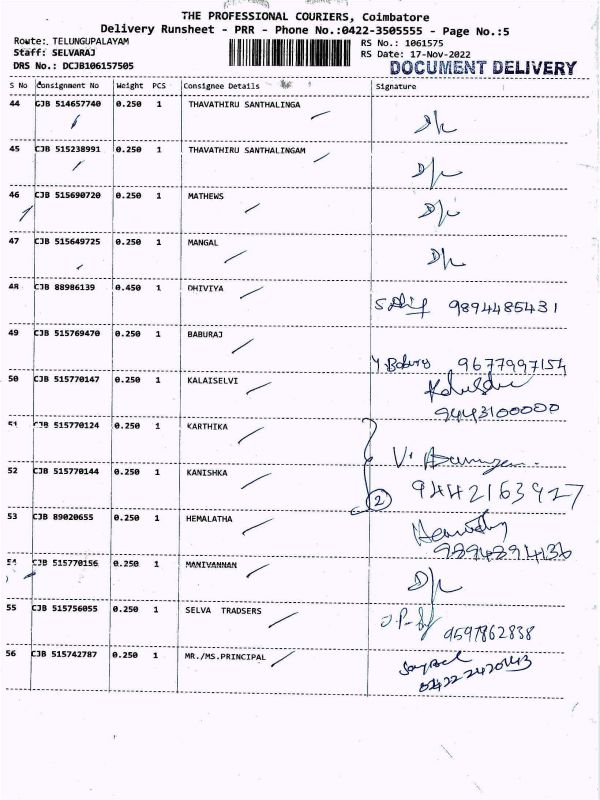 THE PROFESSIONAL COURIERS, Coimbatore
Delivery Runsheet - PRR - Phone No.:0422-3505555 - Page No.:5
Route:. TELUNGUPALAYAM
RS No.: 1061575
Staff: SELVARAJ
RS Date: 17-Nov-2022
DRS No.: DCJB106157505
DOCUMENT DELIVERY
S No Consignment No Weight PCS Consignee Details Signature
44 CJB 514657740 0.250 1 THAVATHIRU SANTHALINGA D/c
45 CJB 515238991 0.250 1 THAVATHIRU SANTHALINGAM D/c
46 CJB 515690720 0.250 1 MATHEWS D/c
47 CJB 515649725 0.250 1 MANGAL D/c
48 CJB 88986139 0.450 1 DHIVIYA 9894485431
49 CJB 515769470 0.250 1 BABURAJ 9677997154
50 CJB 515770147 0.250 1 KALAISELVI
9443100000
51 CJB 515770124 0.250 1 KARTHIKA
52 CJB 515770144 0.250 1 KANISHKA 9442163927
2
53 CJB 89020655 0.250 1 HEMALATHA
9894894136
54 CJB 515770156 0.250 1 MANIVANNAN D/c
55 CJB 515756055 0.250 1 SELVA TRADSERS 9597862838
56 CJB 515742787 0.250 1 MR./MS.PRINCIPAL